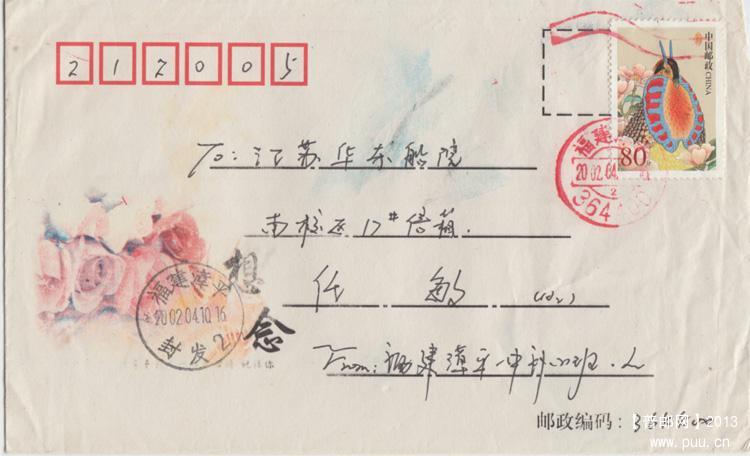 212005
中国邮政 CHINA
80
福建
20 02.04.
2
364
To: 江苏华东船院
南校区17#信箱.
任敏(收)
想念
福建漳平
2002.04.10.16
封发
From: 福建漳平一中
邮政编码:
【普邮网】2013
www.puu.cn